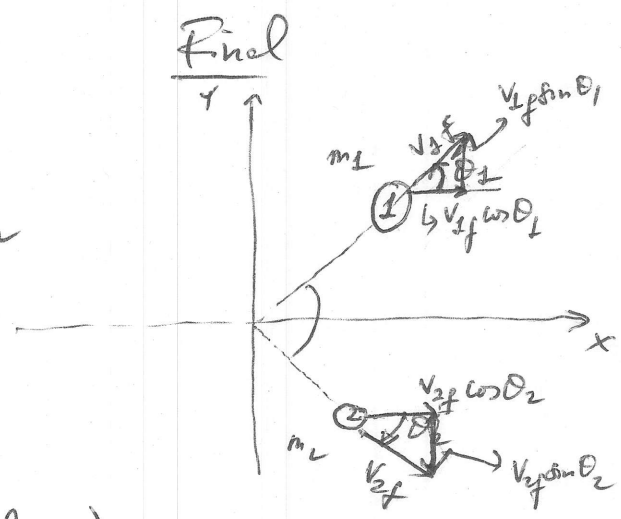 Final
Y
V1f sinθ1
V1f
m1
θ1
1
↳ V1f cosθ1
X
V2f cosθ2
2
θ2
m2
V2f
V2f sinθ2